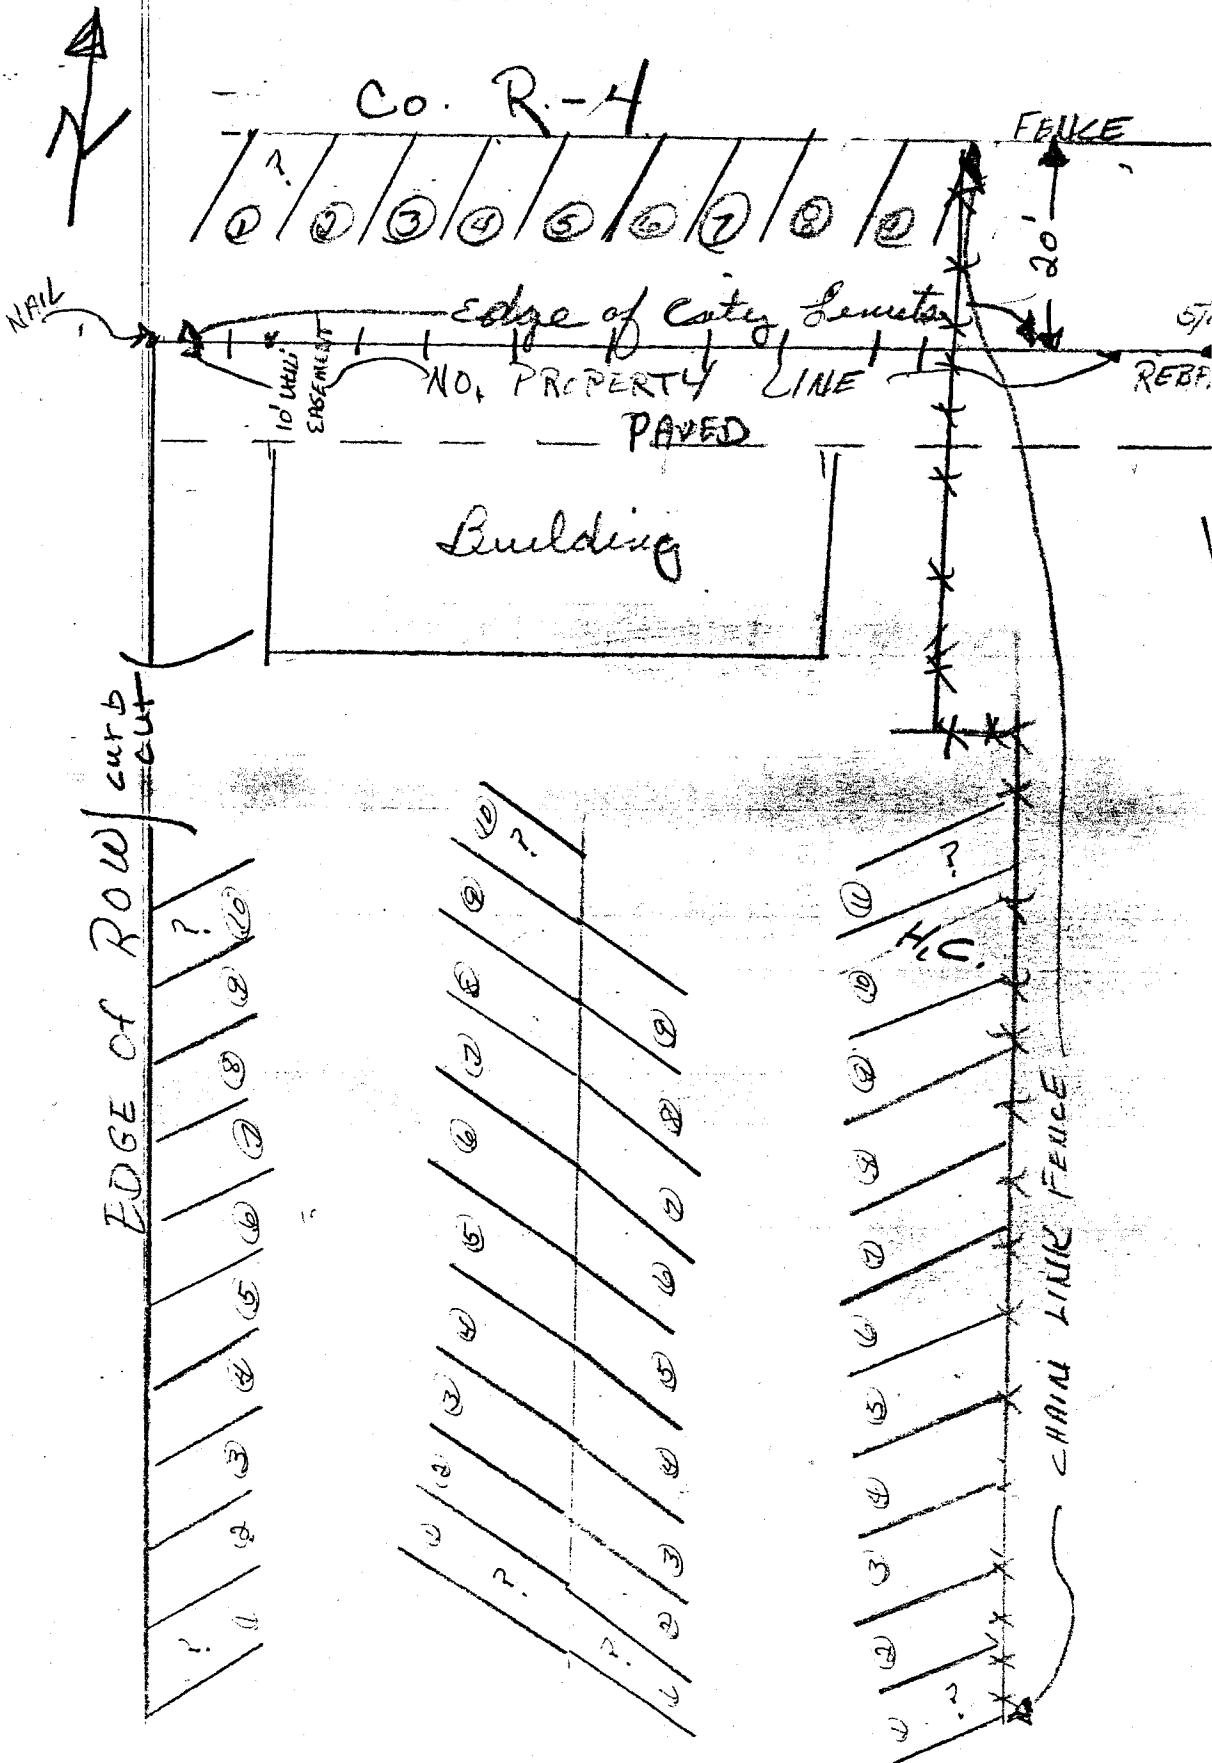 N
Co. R.-4
FENCE
?
① ② ③ ④ ⑤ ⑥ ⑦ ⑧ ⑨
20'
NAIL
Edge of City Limits
10' Utili
EASEMENT
NO. PROPERTY LINE
PAVED
Building
EDGE OF ROW
curb
cut
⑩ ?
⑨
⑧
⑦
⑥
⑤
④
③
②
① ?
⑩ ?
⑨
⑧
⑦
⑥
⑤
④
③
②
① ?
⑨
⑧
⑦
⑥
⑤
④
③
②
① ?
⑪ ?
H.C.
⑩
⑨
⑧
⑦
⑥
⑤
④
③
②
① ?
CHAIN LINK FENCE